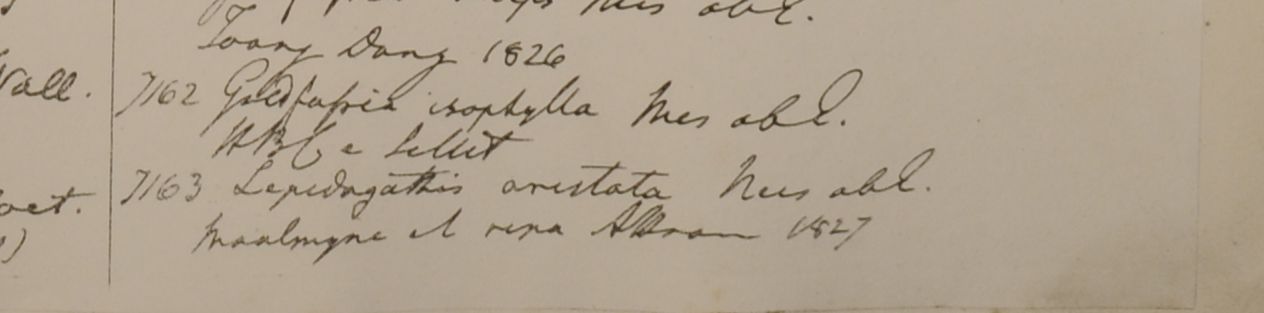 Nees abE.
Toong Dong 1826
Wall. 7162 Goldfussia isophylla Nees abE.
HBC e Sillet
7163 Lepidagathis aristata Nees abE.
Moalmyne et ripa Attran 1827